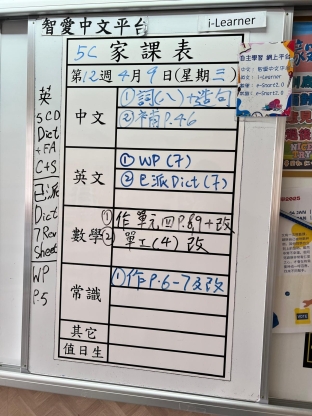 智愛中文平台
i-Learner
5C 家課表
第12週 4月9日(星期三)
中文
①詞(八)+造句
②補 P.46
英文
① WP (7)
② 已派 Dict (7)
數學
① 作 單元四 P.8,9 + 改
② 單工(4) 改
常識
① 作 P.6-7 及改
其它
值日生
英
5 CD
Dict
+ FA
C+S
已派
Dict
7 Rev
Sheet
WP
P.5
自主學習 網上平台